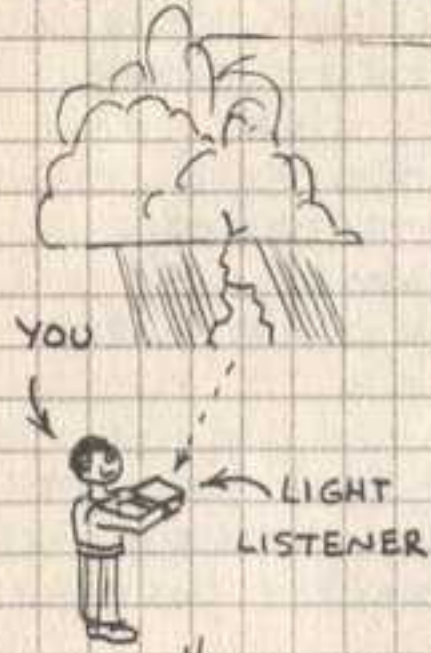 YOU
LIGHT
LISTENER